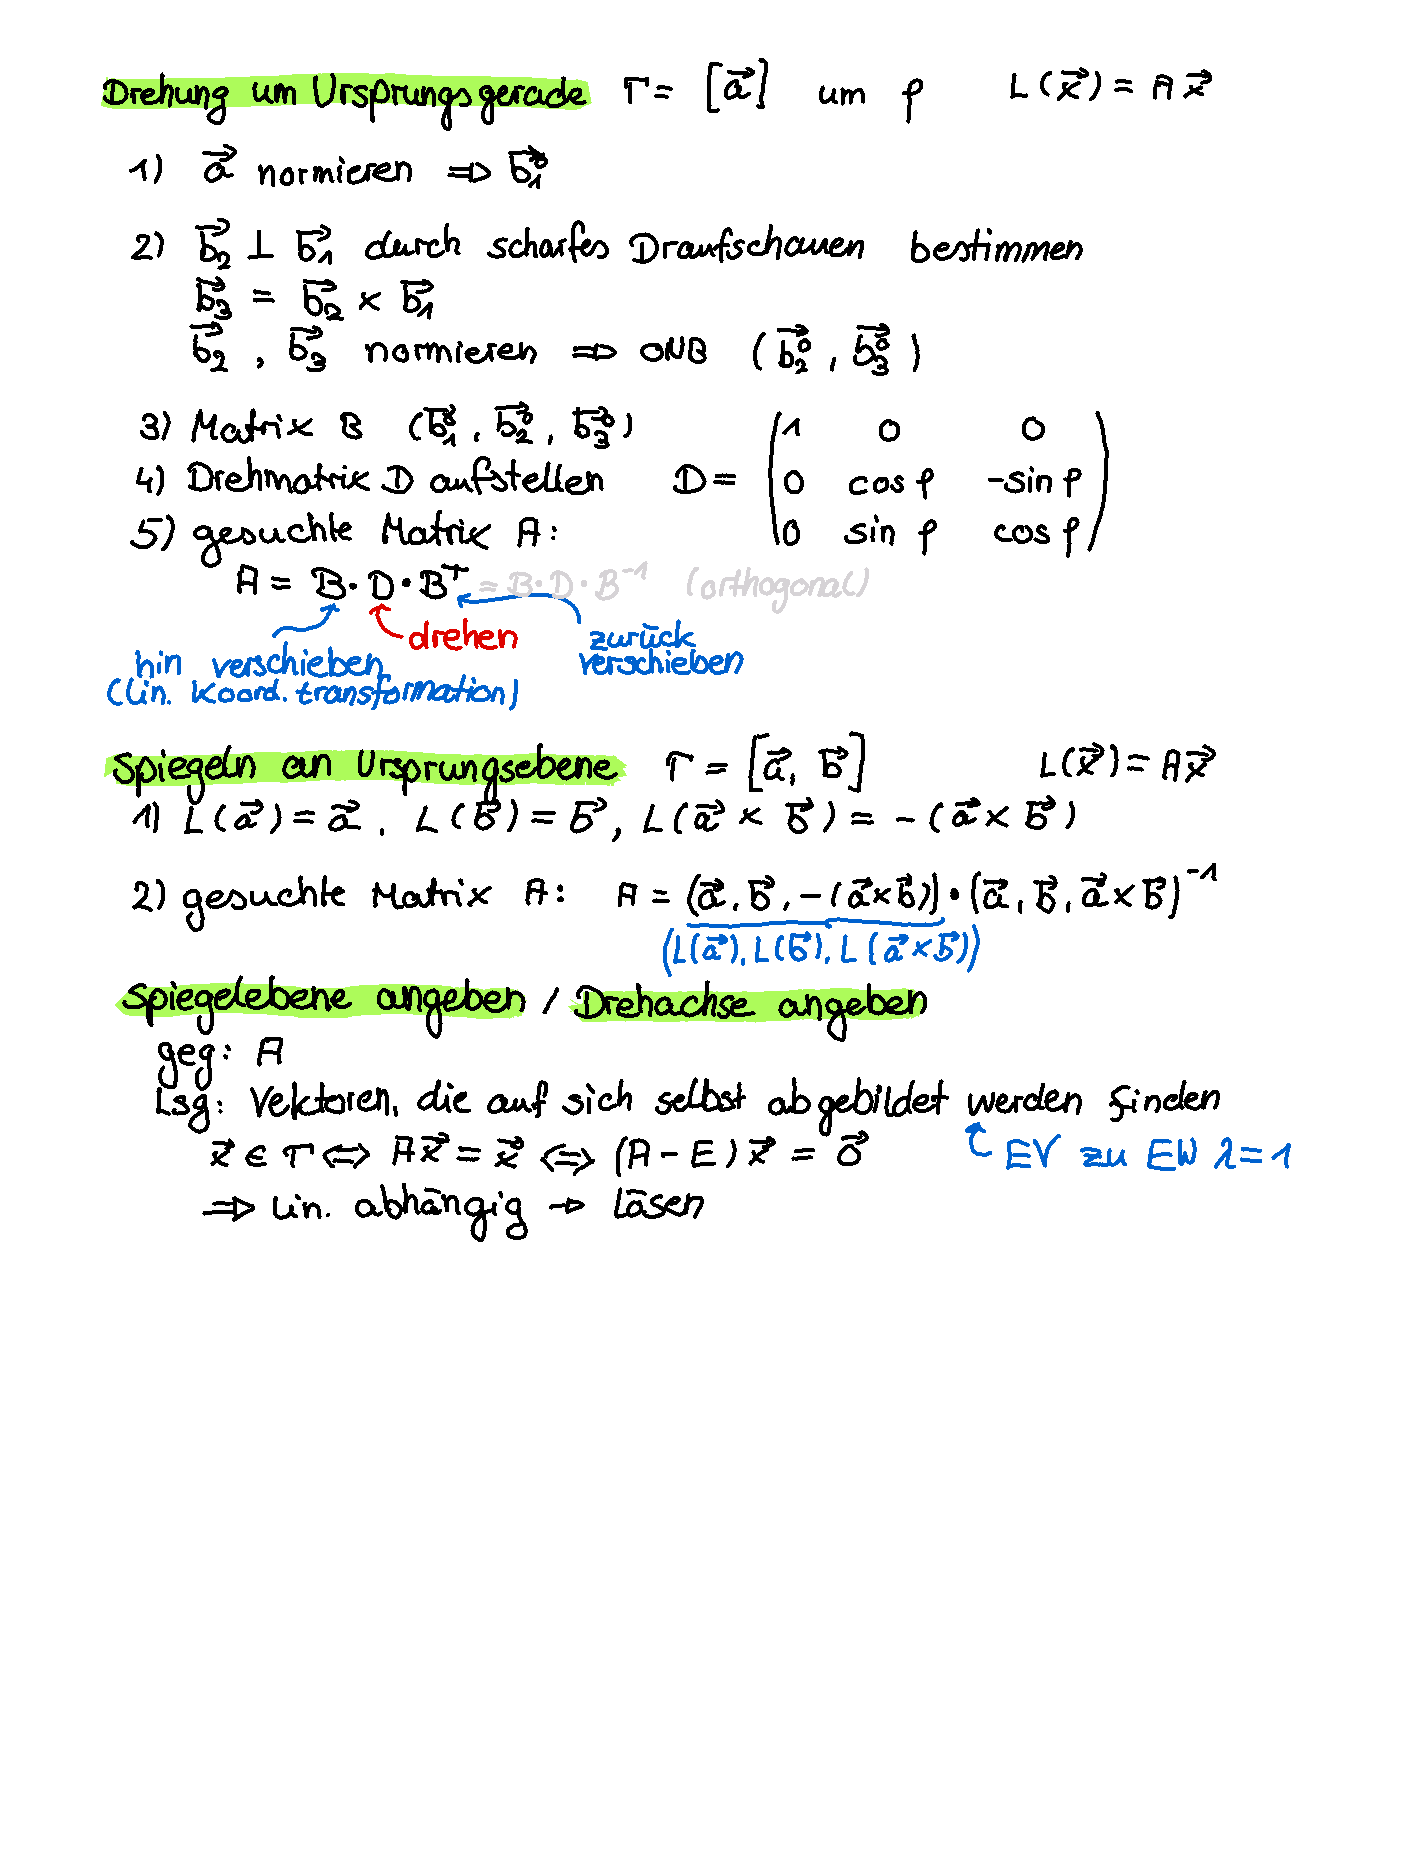 Drehung um Ursprungsgerade T = [a⃗] um φ L(x⃗) = A x⃗
1) a⃗ normieren ⇒ b⃗₁⁰
2) b⃗₂ ⊥ b⃗₁ durch scharfes Draufschauen bestimmen
b⃗₃ = b⃗₂ × b⃗₁
b⃗₂, b⃗₃ normieren ⇒ ONB (b⃗₂⁰, b⃗₃⁰)
3) Matrix B (b⃗₁⁰, b⃗₂⁰, b⃗₃⁰)
4) Drehmatrix D aufstellen D = (1 0 0
0 cos φ -sin φ
0 sin φ cos φ)
5) gesuchte Matrix A:
A = B · D · Bᵀ = B · D · B⁻¹ (orthogonal)
drehen
hin verschieben
(Lin. Koord. transformation)
zurück
verschieben
Spiegeln an Ursprungsebene T = [a⃗, b⃗] L(x⃗) = A x⃗
1) L(a⃗) = a⃗, L(b⃗) = b⃗, L(a⃗ × b⃗) = -(a⃗ × b⃗)
2) gesuchte Matrix A: A = (a⃗, b⃗, -(a⃗×b⃗)) · (a⃗, b⃗, a⃗×b⃗)⁻¹
(L(a⃗), L(b⃗), L(a⃗×b⃗))
Spiegelebene angeben / Drehachse angeben
geg: A
Lsg: Vektoren, die auf sich selbst abgebildet werden finden
x⃗ ∈ T ⇔ A x⃗ = x⃗ ⇔ (A - E) x⃗ = 0⃗ EV zu EW λ = 1
⇒ Lin. abhängig → lösen